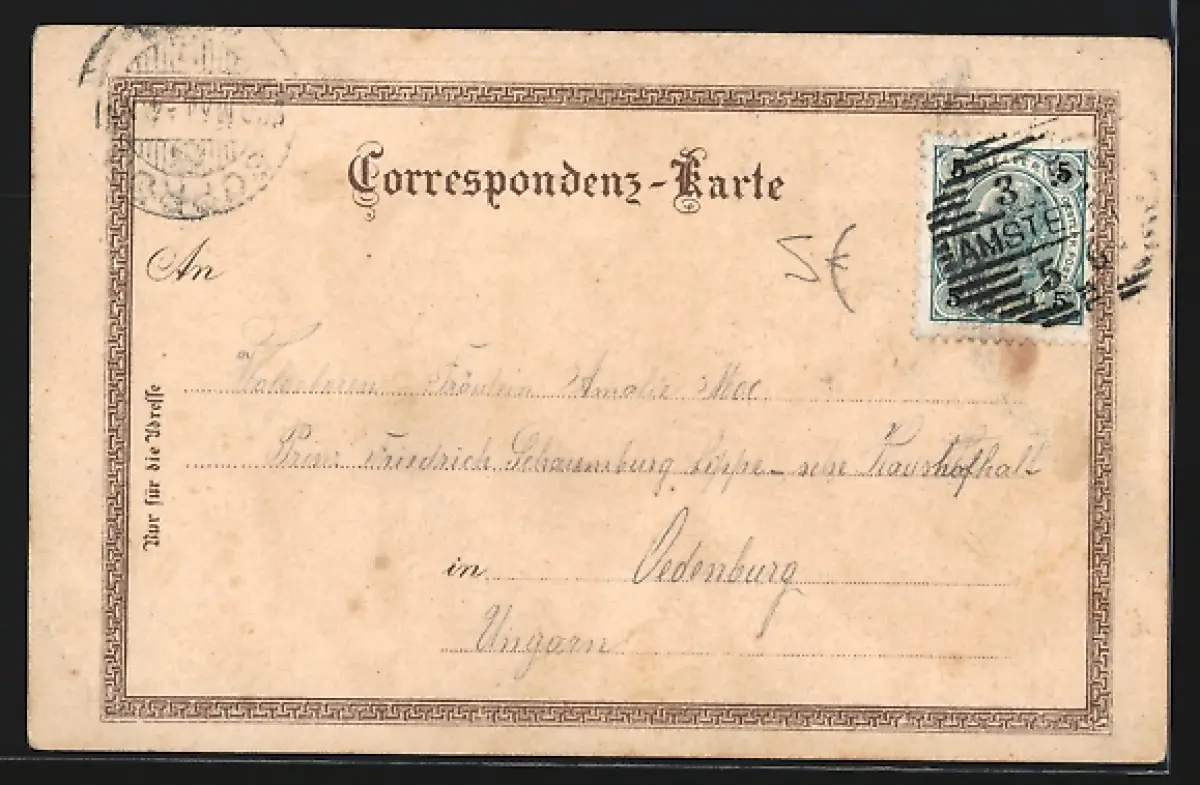 Correspondenz-Karte
5 5
3
AMSTE
5
5 5
SOPR
5€
An
Fräulein Amalie
Prinz Friedrich Schaumburg Lippe-
Nur für die Adresse
in Oedenburg
Ungarn